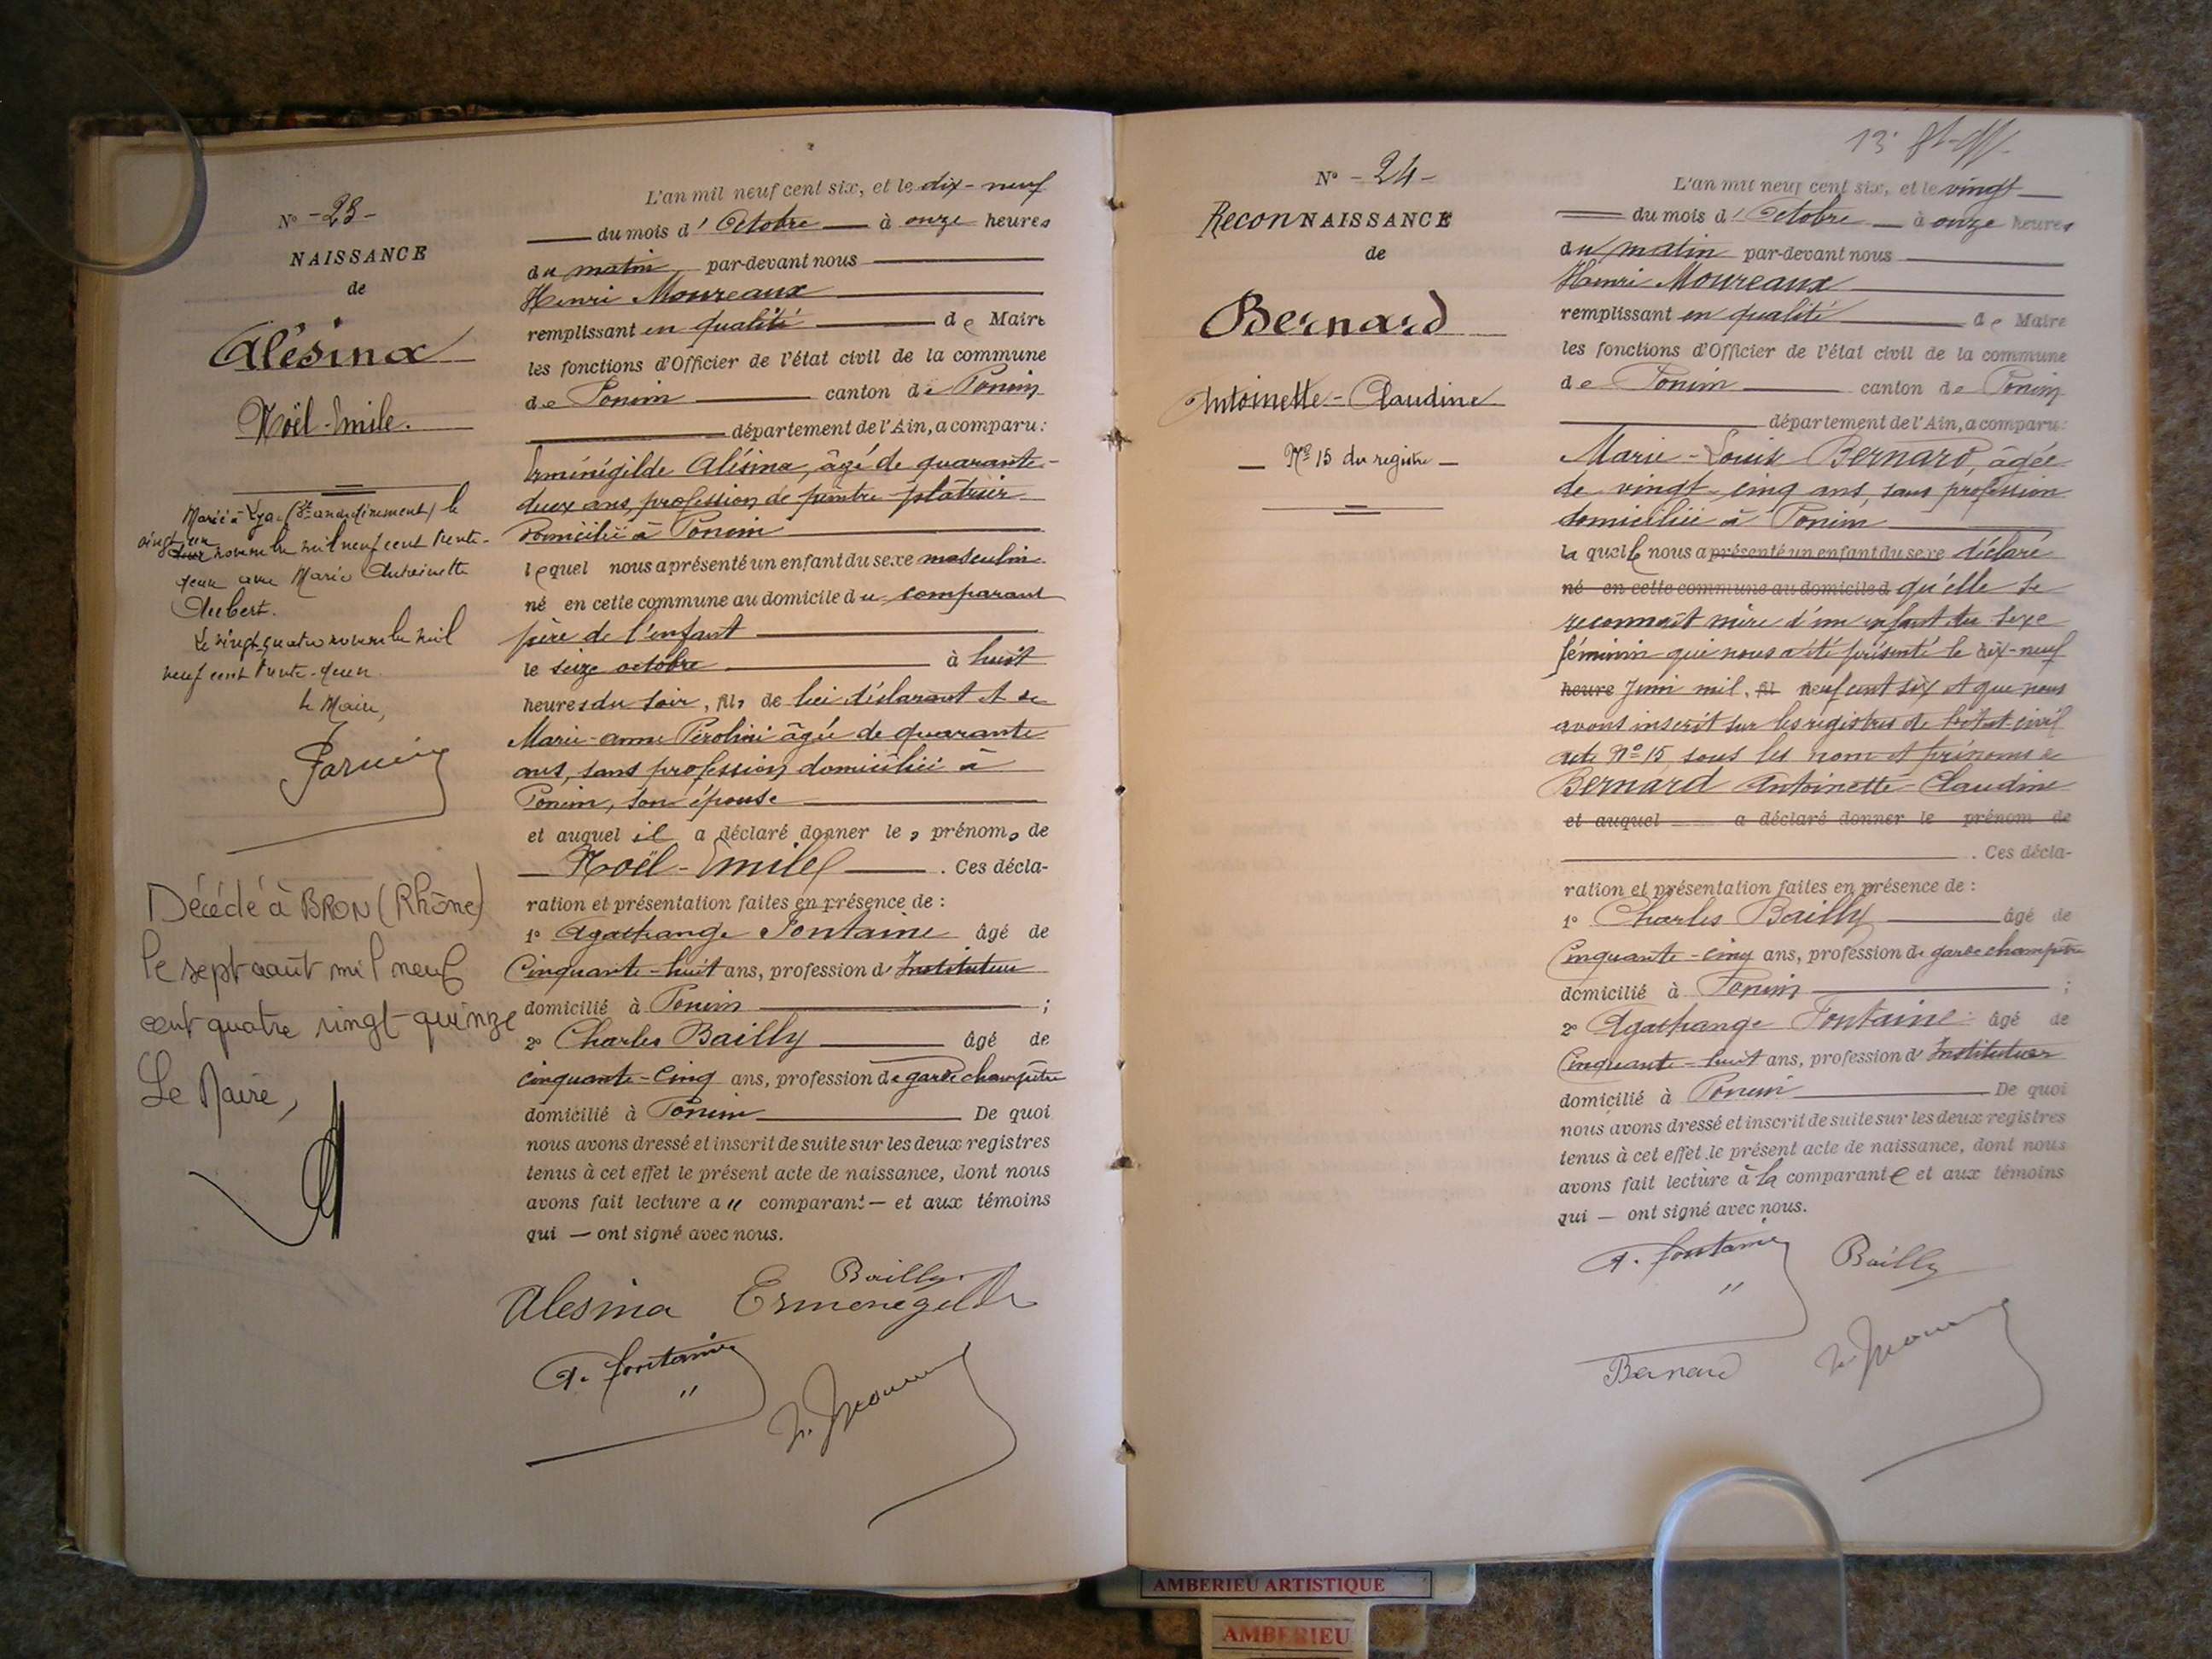 N° - 23 -
NAISSANCE
de
Alésina
Noël-Emile.
Marié à Lyon (3e arrondissement) le
vingt un
novembre mil neuf cent trente-
deux avec Marie Antoinette
Aubert.
Le vingt quatre novembre mil
neuf cent trente-deux
le Maire,
Décédé à BRON (Rhône)
le sept août mil neuf
cent quatre vingt-quinze
Le Maire,
L'an mil neuf cent six, et le dix-neuf
du mois d'Octobre à onze heures
du matin par-devant nous
Henri Moureaux
remplissant en qualité de Maire
les fonctions d'Officier de l'état civil de la commune
de Poncin canton de Poncin
département de l'Ain, a comparu :
Erménégilde Alésina, âgé de quarante-
deux ans, profession de peintre-plâtrier
domicilié à Poncin
lequel nous a présenté un enfant du sexe masculin
né en cette commune au domicile du comparant
père de l'enfant
le seize octobre à huit
heures du soir, fils de lui déclarant et de
Marie-Anne Pérolini âgée de quarante
ans, sans profession domiciliée à
Poncin, son épouse
et auquel il a déclaré donner les prénoms de
Noël-Emile . Ces décla-
ration et présentation faites en présence de :
1° Agathange Fontaine âgé de
Cinquante-huit ans, profession d'Instituteur
domicilié à Poncin ;
2° Charles Bailly âgé de
cinquante-cinq ans, profession de garde champêtre
domicilié à Poncin De quoi
nous avons dressé et inscrit de suite sur les deux registres
tenus à cet effet le présent acte de naissance, dont nous
avons fait lecture au comparant — et aux témoins
qui — ont signé avec nous.
Bailly
Alesina Ermenégilde
A. Fontaine
13e
N° - 24 -
ReconNAISSANCE
de
Bernard
Antoinette-Claudine
— N° 15 du registre —
L'an mil neuf cent six, et le vingt
du mois d'Octobre à onze heures
du matin par-devant nous
Henri Moureaux
remplissant en qualité de Maire
les fonctions d'Officier de l'état civil de la commune
de Poncin canton de Poncin
département de l'Ain, a comparu :
Marie-Louise Bernard, âgée
de vingt-cinq ans, sans profession
domiciliée à Poncin
laquelle nous a présenté un enfant du sexe déclare
né en cette commune au domicile d qu'elle se
reconnaît mère d'un enfant du sexe
féminin qui nous a été présenté le dix-neuf
heure Juin mil, fil neuf cent six et que nous
avons inscrit sur les registres de l'état civil
acte N° 15 sous les nom et prénoms de
Bernard Antoinette-Claudine
et auquel a déclaré donner le prénom de
. Ces décla-
ration et présentation faites en présence de :
1° Charles Bailly âgé de
Cinquante-cinq ans, profession de garde champêtre
domicilié à Poncin ;
2° Agathange Fontaine âgé de
Cinquante-huit ans, profession d'Instituteur
domicilié à Poncin De quoi
nous avons dressé et inscrit de suite sur les deux registres
tenus à cet effet le présent acte de naissance, dont nous
avons fait lecture à la comparante et aux témoins
qui — ont signé avec nous.
A. Fontaine Bailly
Bernard
AMBERIEU ARTISTIQUE
AMBERIEU